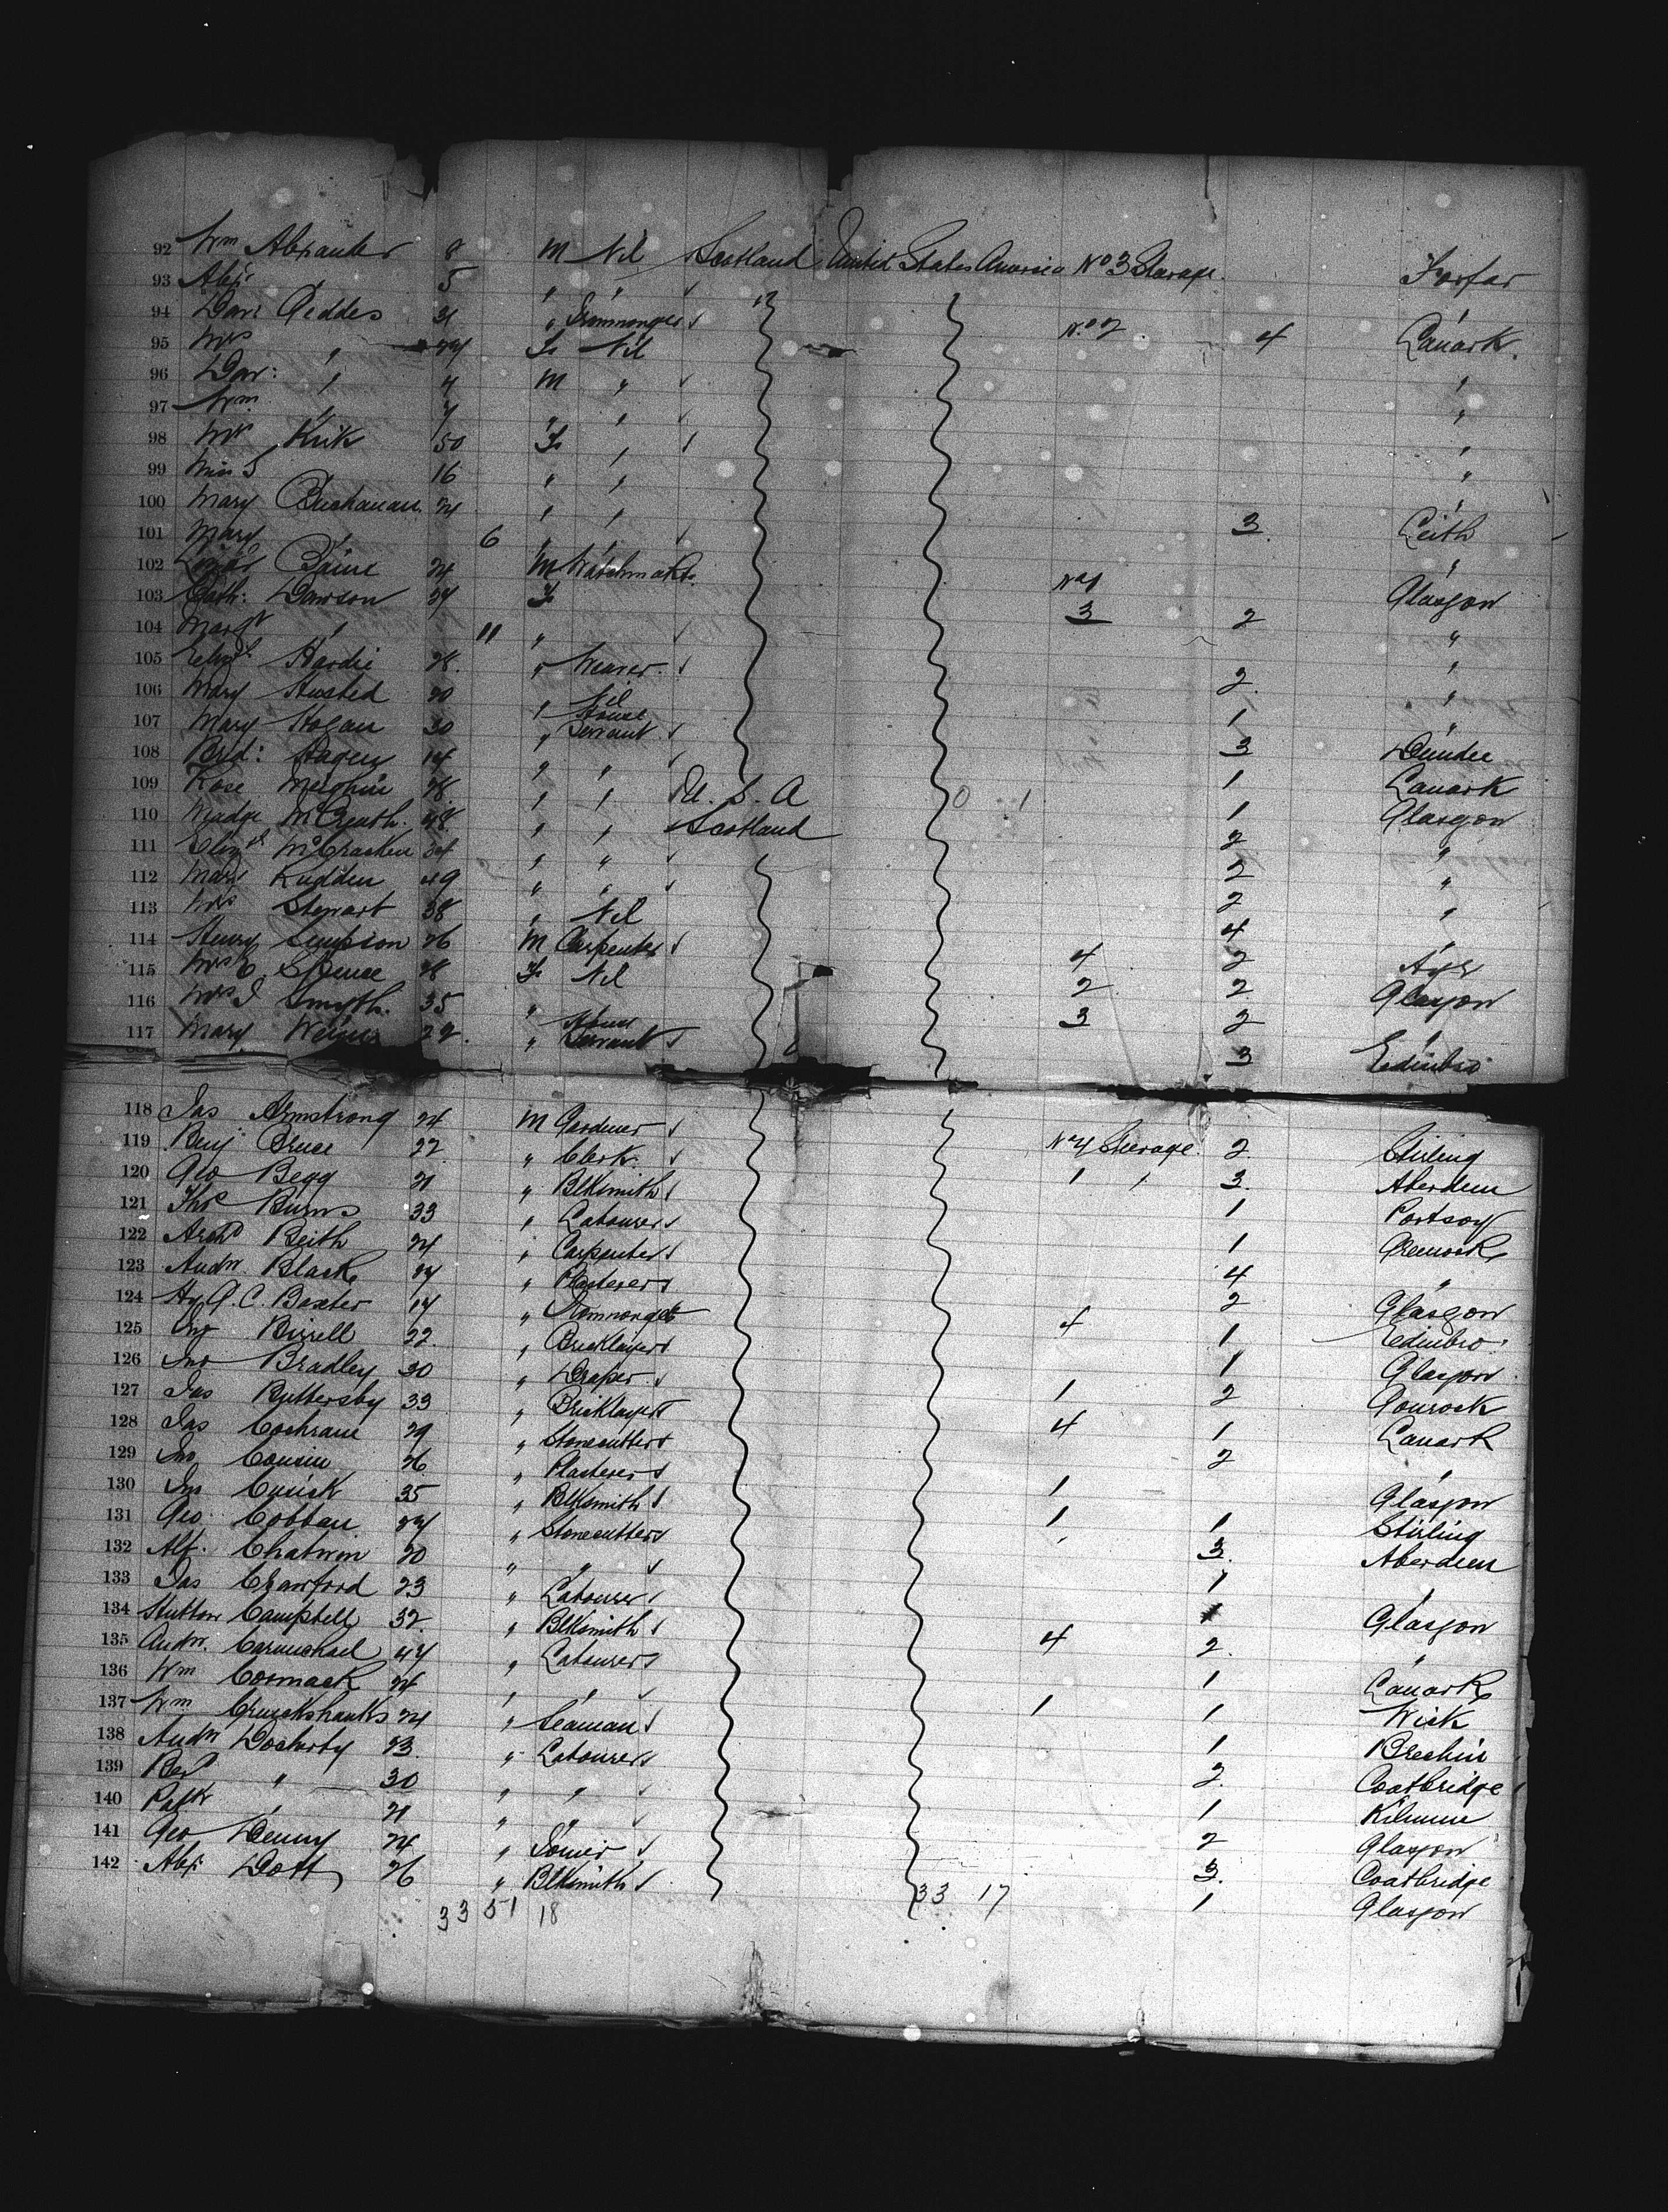 92 Wm Alexander 8 M Nil Scotland United States America No 3 Steerage Forfar
93 Alexr " 5 " " "
94 Dav: Geddes 31 " Ironmonger No 2 4 Lanark
95 Mrs " 27 F Nil "
96 Dav: " 4 M " "
97 Wm " " " "
98 Mrs Kirk 50 F " "
99 Miss S 16 " " "
100 Mary Buchanan 24 " " 3 Leith
101 Mary " 6 " " "
102 Baine 24 M Watchmaker No 1 Glasgow
103 Cath: Dawson 27 F 3 2 "
104 Margt " 11 " "
105 Elizth Hardie 28 " Weaver 2 "
106 Mary Husted 20 " Nil 1 "
107 Mary Hogan 30 " House Servant 3 Dundee
108 Brid: Hagen 14 " " 1 Lanark
109 Rose 28 " " U. S. A 0 1 1 Glasgow
110 Madge 48 " " Scotland 2 "
111 Elizth McCracken 34 " " 2 "
112 Mary Rudden 49 " " 2 "
113 Mrs Stewart 38 " Nil 4 "
114 Henry Simpson 26 M Carpenter 4 2 Ayr
115 Mrs C. Spence 28 F Nil 2 2 Glasgow
116 Mrs J Smyth 35 " 3 2 "
117 Mary 22 " House Servant 3 Edinbro
118 Jas Armstrong 24 M Gardener No 4 Steerage 2 Stirling
119 Benj Bruce 22 " Clerk 1 " 3 Aberdeen
120 Geo Begg 21 " Blksmith 1 Portsoy
121 Thos Burns 33 " Labourer 1 Greenock
122 Archd Beith 24 " Carpenter 4 "
123 Andw Black 27 " Plasterer 2 Glasgow
124 Hy A. C. Baxter 17 " Ironmonger 4 1 Edinbro:
125 Jno Birrell 22 " Bricklayer 1 Glasgow
126 Jno Bradley 30 " Draper 1 2 Gourock
127 Jas Buttersby 33 " Bricklayer 4 1 Lanark
128 Jas Cochrane 29 " Stonecutter 2 "
129 Jno Cousin 26 " Plasterer 1 Glasgow
130 Jno Cusick 35 " Blksmith 1 1 Stirling
131 Geo Cobban 27 " Stonecutter " 3 Aberdeen
132 Alf. Chatwin 20 " " 1 "
133 Jas Crawford 23 " Labourer 1 Glasgow
134 Hutton Campbell 32 " Blksmith 4 2 "
135 Andw. Carmichael 47 " Labourer 1 Lanark
136 Wm Cormack 24 " " 1 1 Wick
137 Wm Cruickshanks 24 " Seaman 1 Brechin
138 Andw Docherty 23 " Labourer 2 Coatbridge
139 " 30 " " 1 Kilmun
140 Patk " 21 " " 2 Glasgow
141 Geo Denny 24 " Joiner 3 Coatbridge
142 Alex Dott 26 " Blksmith 1 Glasgow
33 51 18 33 17